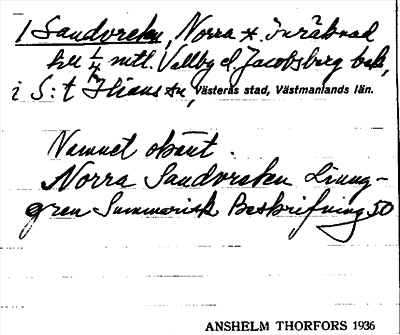 1 Sandvreten, Norra *. inräknad
bet ¼ mtl. Vallby el. Jacobsberg bel.
i S:t Ilians sn, Västerås stad, Västmanlands län.
Namnet obänt.
Norra Sandvreten Ljung-
gren Summarisk Beskrifning 50
ANSHELM THORFORS 1936